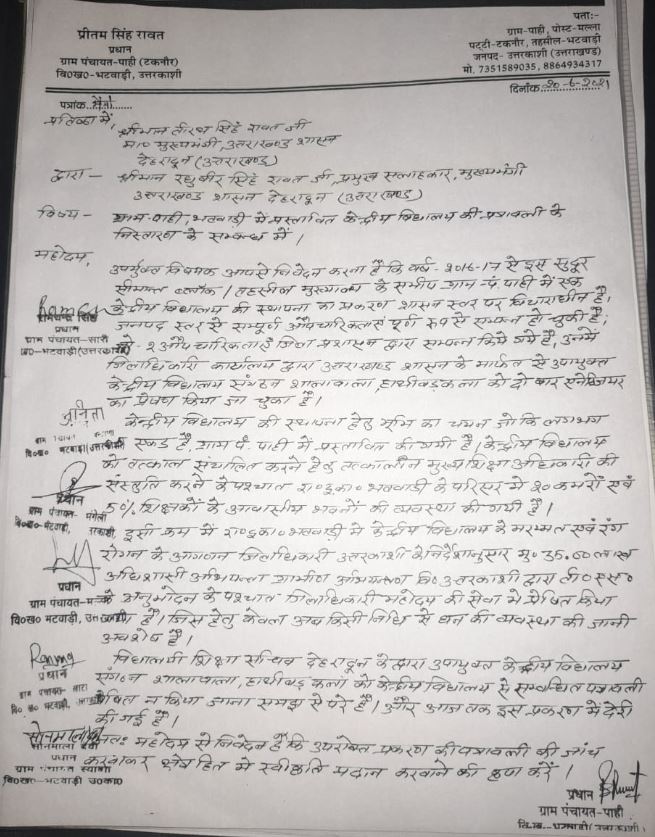 प्रीतम सिंह रावत
प्रधान
ग्राम पंचायत-पाही (टकनौर)
वि०ख०-भटवाड़ी, उत्तरकाशी
पता:-
ग्राम-पाही, पोस्ट-मल्ला
पट्टी-टकनौर, तहसील-भटवाड़ी
जनपद- उत्तरकाशी (उत्तराखण्ड)
मो. 7351589035, 8864934317
पत्रांक
दिनांक 20-6-2021
सेवा में,
श्रीमान तीरथ सिंह रावत जी
मा० मुख्यमंत्री, उत्तराखण्ड शासन
देहरादून (उत्तराखण्ड)
द्वारा - श्रीमान रघुबीर सिंह रावत जी, प्रमुख सलाहकार, मुख्यमंत्री
उत्तराखण्ड शासन देहरादून (उत्तराखण्ड)
विषय - ग्राम-पाही, भटवाड़ी में प्रस्तावित केन्द्रीय विद्यालय की पत्रावली के
निस्तारण के सम्बन्ध में।
महोदय,
उपर्युक्त विषयक आपसे निवेदन करना है कि वर्ष 2016-17 से इस सुदूर
सीमान्त ब्लॉक / तहसील मुख्यालय के समीप ग्राम पं. पाही में एक
केन्द्रीय विद्यालय की स्थापना का प्रकरण शासन स्तर पर विचाराधीन है,
जनपद स्तर से सम्पूर्ण औपचारिकताएं पूर्ण रूप से सम्पन्न हो चुकी हैं;
औपचारिकताएं जिला प्रशासन द्वारा सम्पन्न किये गये हैं, उनमें
जिलाधिकारी कार्यालय द्वारा उत्तराखण्ड शासन के मार्फत से उपायुक्त
केन्द्रीय विद्यालय संगठन शालावाला, हाथीबड़कला को दो बार
का प्रेषण किया जा चुका है।
केन्द्रीय विद्यालय की स्थापना हेतु भूमि का चयन जो कि लगभग
एकड़ है, ग्राम पं. पाही में प्रस्तावित की गयी है। केन्द्रीय विद्यालय
को तत्काल संचालित करने हेतु तत्कालीन मुख्य शिक्षा अधिकारी की
संस्तुति करने के पश्चात रा०इ०का० भटवाड़ी के परिसर में 20 कमरों एवं
50% शिक्षकों के आवासीय भवनों की व्यवस्था की गयी है।
इसी क्रम में रा०इ०का० भटवाड़ी में केन्द्रीय विद्यालय के मरम्मत एवं रंग
रोगन के आगणन जिलाधिकारी उत्तरकाशी के निर्देशानुसार मु० लाख
अधिशासी अभियन्ता ग्रामीण अभियन्त्रण वि० उत्तरकाशी द्वारा टी०एस०
के अनुमोदन के पश्चात जिलाधिकारी महोदय की सेवा में प्रेषित किया
है। जिस हेतु केवल अब किसी निधि से धन की व्यवस्था की जानी
अवशेष है।
विद्यालयी शिक्षा सचिव देहरादून के द्वारा उपायुक्त केन्द्रीय विद्यालय
संगठन शालावाला, हाथीबड़कला को केन्द्रीय विद्यालय से सम्बन्धित पत्रावली
प्रेषित न किया जाना समझ से परे है। और आज तक इस प्रकरण में देरी
की गई है।
अतः महोदय से निवेदन है कि उपरोक्त प्रकरण की पत्रावली की जांच
करवाकर क्षेत्र हित में स्वीकृति प्रदान करवाने की कृपा करें।
प्रधान
ग्राम पंचायत-पाही
वि.ख.-भटवाड़ी
प्रधान
ग्राम पंचायत-
प्रधान
ग्राम पंचायत-
प्रधान
ग्राम पंचायत-
वि०ख० भटवाड़ी,
प्रधान
सोनमाला देवी
प्रधान
ग्राम पंचायत स्याबा
वि०ख०-भटवाड़ी उ०का०